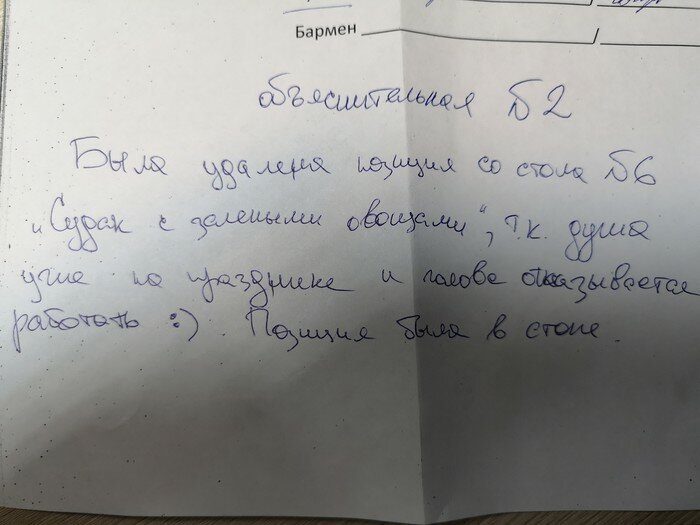 Бармен
объяснительная №2
Была удалена позиция со стола №6
"Судак с зелеными овощами", т.к. душа
уже на празднике и голова отказывается
работать :). Позиция была в стопе.